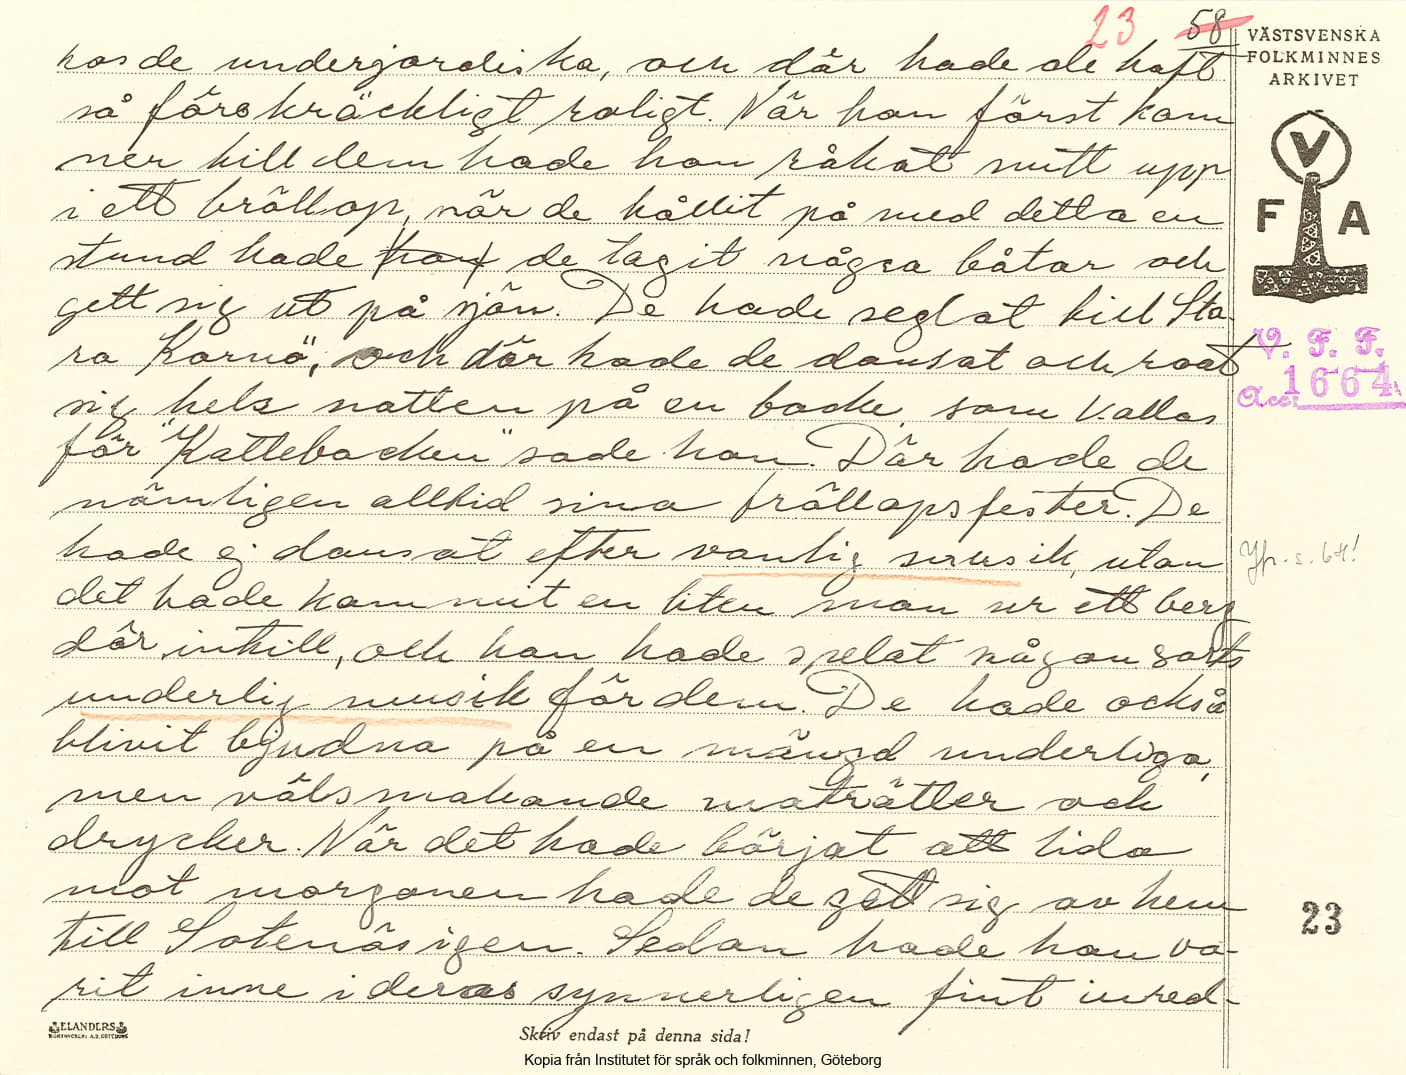 23 58
VÄSTSVENSKA
FOLKMINNES
ARKIVET
V
F A
V. F. F.
Acc. 1664
hos de underjordiska, och där hade de haft
så förskräckligt roligt. När han först kom
ner till dem hade han råkat mitt upp
i ett bröllop, när de hållit på med detta en
stund hade han de tagit några båtar och
gett sig ut på sjön. De hade seglat till "Sto-
ra Kornö", och där hade de dansat och roat
sig hela natten på en backe, som kallas
för "Kattebacken" sade han. Där hade de
nämligen alltid sina bröllopsfester. De
hade ej dansat efter vanlig musik, utan
det hade kommit en liten man ur ett berg
där intill, och han hade spelat någon sorts
underlig musik för dem. De hade också
blivit bjudna på en mängd underliga,
men välsmakande maträtter och
drycker. När det hade börjat att lida
mot morgonen hade de gett sig av hem
till Sotenäs igen. Sedan hade han va-
rit inne i deras synnerligen fint inred-
Jfr. s. 64!
23
ELANDERS
Skriv endast på denna sida!
Kopia från Institutet för språk och folkminnen, Göteborg